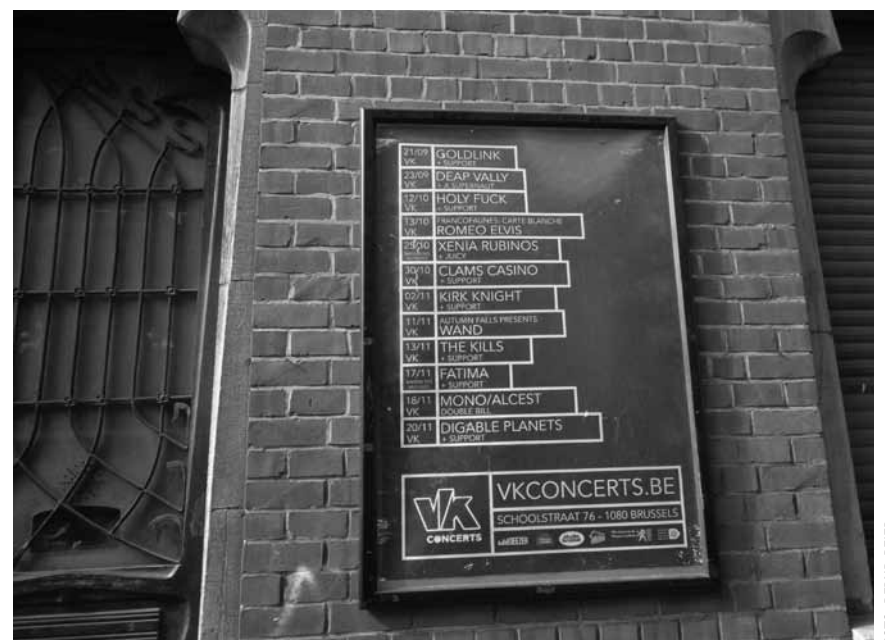 21/09 GOLDLINK
VK + SUPPORT
23/09 DEAP VALLY
VK + JL SUPERNAUT
12/10 HOLY FUCK
VK + SUPPORT
13/10 FRANCOFAUNES: CARTE BLANCHE
VK ROMEO ELVIS
XENIA RUBINOS
+ JUICY
30/10 CLAMS CASINO
VK + SUPPORT
02/11 KIRK KNIGHT
VK + SUPPORT
11/11 AUTUMN FALLS PRESENTS
VK WAND
13/11 THE KILLS
VK + SUPPORT
17/11 FATIMA
+ SUPPORT
18/11 MONO/ALCEST
VK DOUBLE BILL
20/11 DIGABLE PLANETS
VK + SUPPORT
VK CONCERTS
VKCONCERTS.BE
SCHOOLSTRAAT 76 - 1080 BRUSSELS